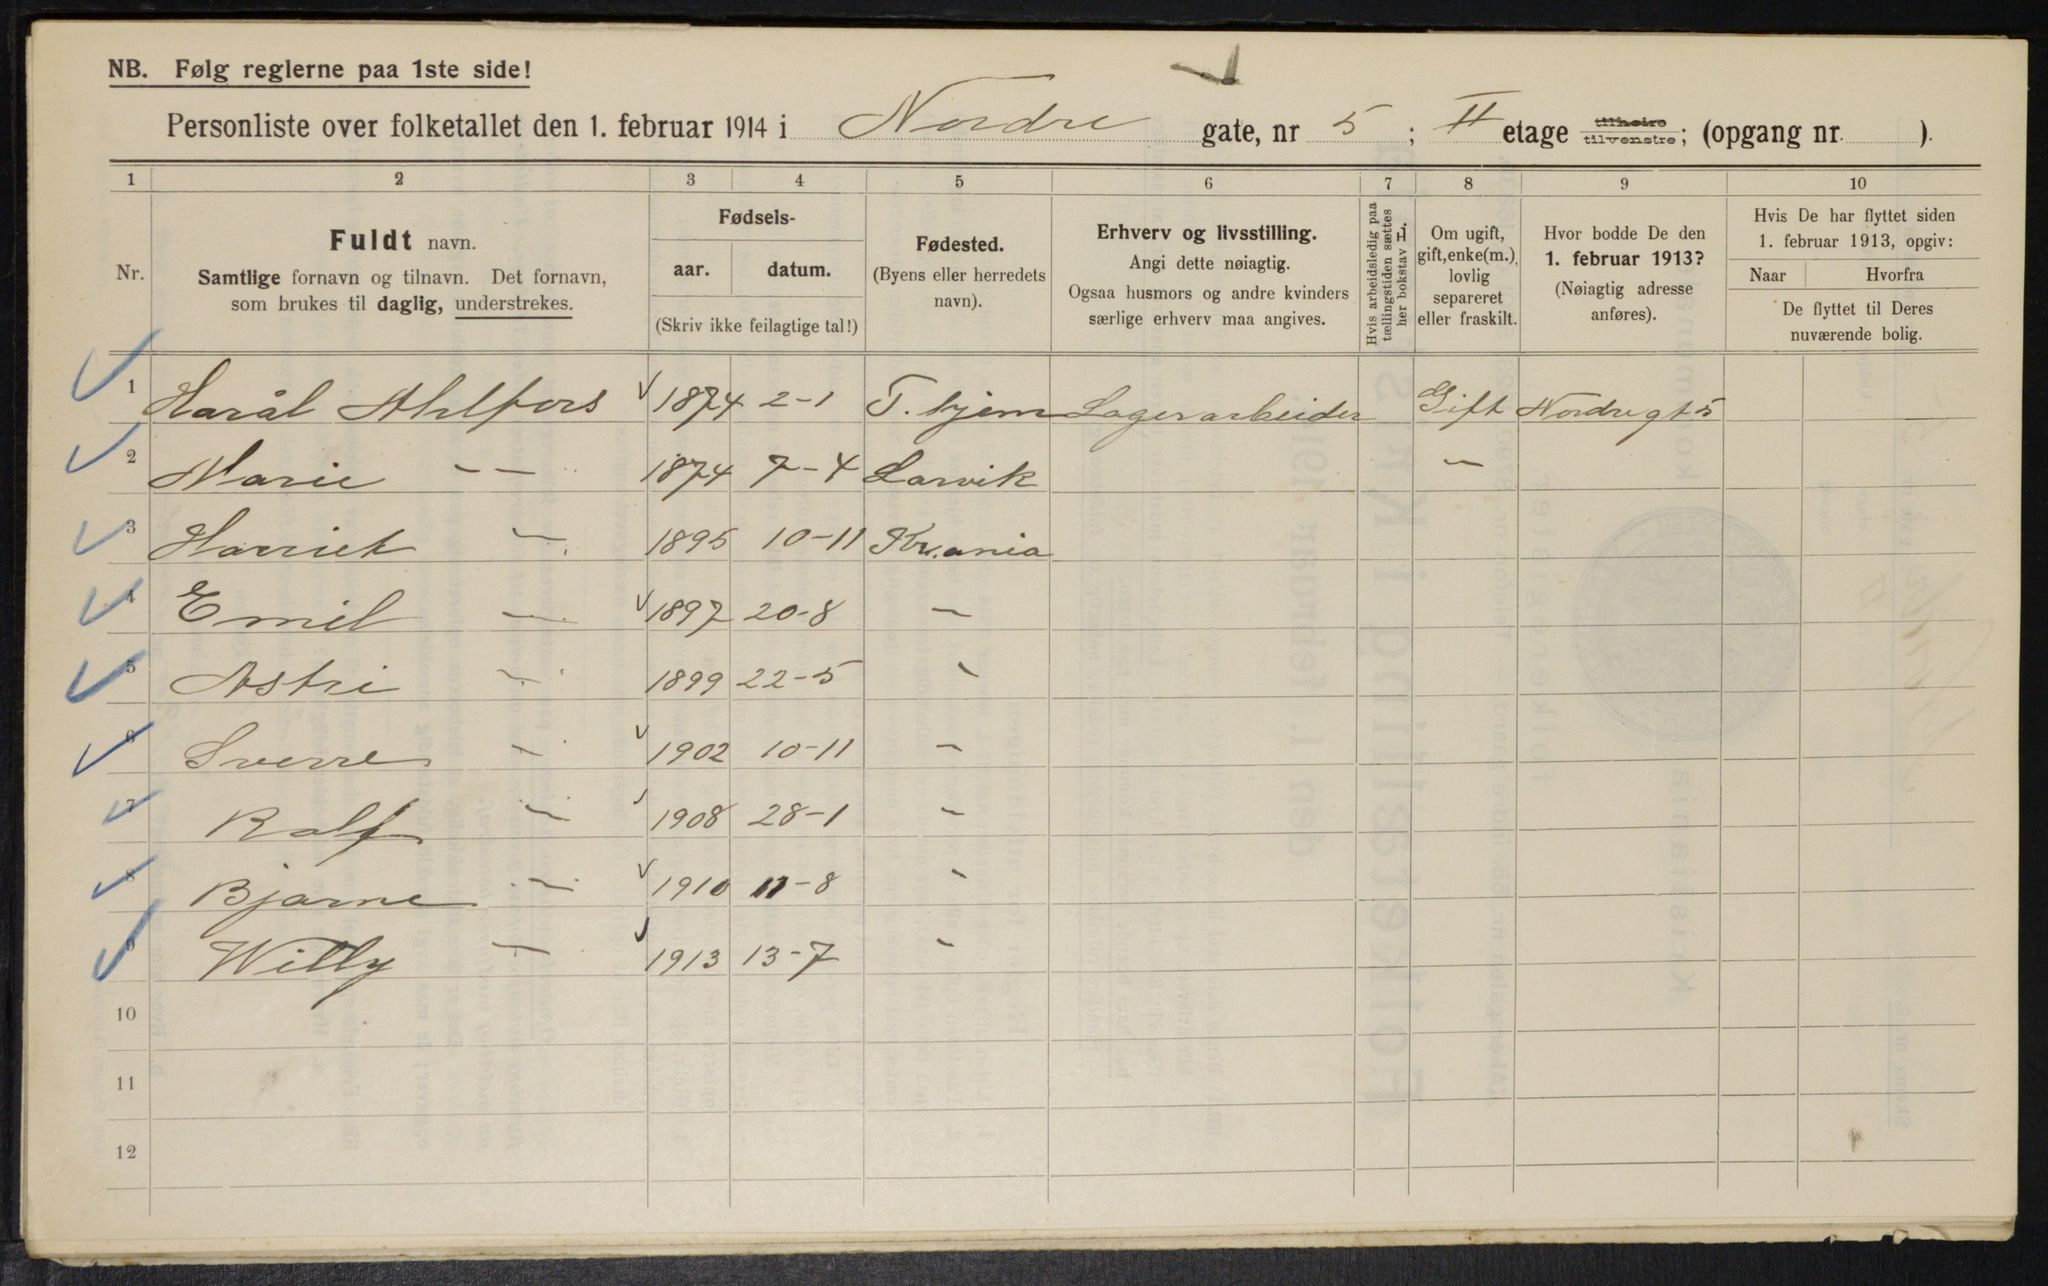 NB. Følg reglerne paa 1ste side!
Personliste over folketallet den 1. februar 1914 i Nordre gate, nr 5; II etage tilhøire tilvenstre; (opgang nr. ).
1 2 3 4 5 6 7 8 9 10
Nr.
Fuldt navn.
Samtlige fornavn og tilnavn. Det fornavn,
som brukes til daglig, understrekes.
Fødsels-
aar. datum.
(Skriv ikke feilagtige tal!)
Fødested.
(Byens eller herredets
navn).
Erhverv og livsstilling.
Angi dette nøiagtig.
Ogsaa husmors og andre kvinders
særlige erhverv maa angives.
Hvis arbeidsledig paa
tællingstiden sættes
her bokstav L.
Om ugift,
gift, enke(m.),
lovlig
separeret
eller fraskilt.
Hvor bodde De den
1. februar 1913?
(Nøiagtig adresse
anføres).
Hvis De har flyttet siden
1. februar 1913, opgiv:
Naar Hvorfra
De flyttet til Deres
nuværende bolig.
1 Harål Ahlfors 1874 2-1 T.hjem Lagerarbeider Gift Nordregt 5
2 Marie — — 1874 7-4 Larvik —
3 Harriet — 1895 10-11 Kr.ania
4 Emil — 1897 20-8 —
5 Astri — 1899 22-5 —
6 Sverre — 1902 10-11 —
7 Rolf — 1908 28-1 —
8 Bjarne — 1910 11-8 —
9 Willy — 1913 13-7 —
10
11
12